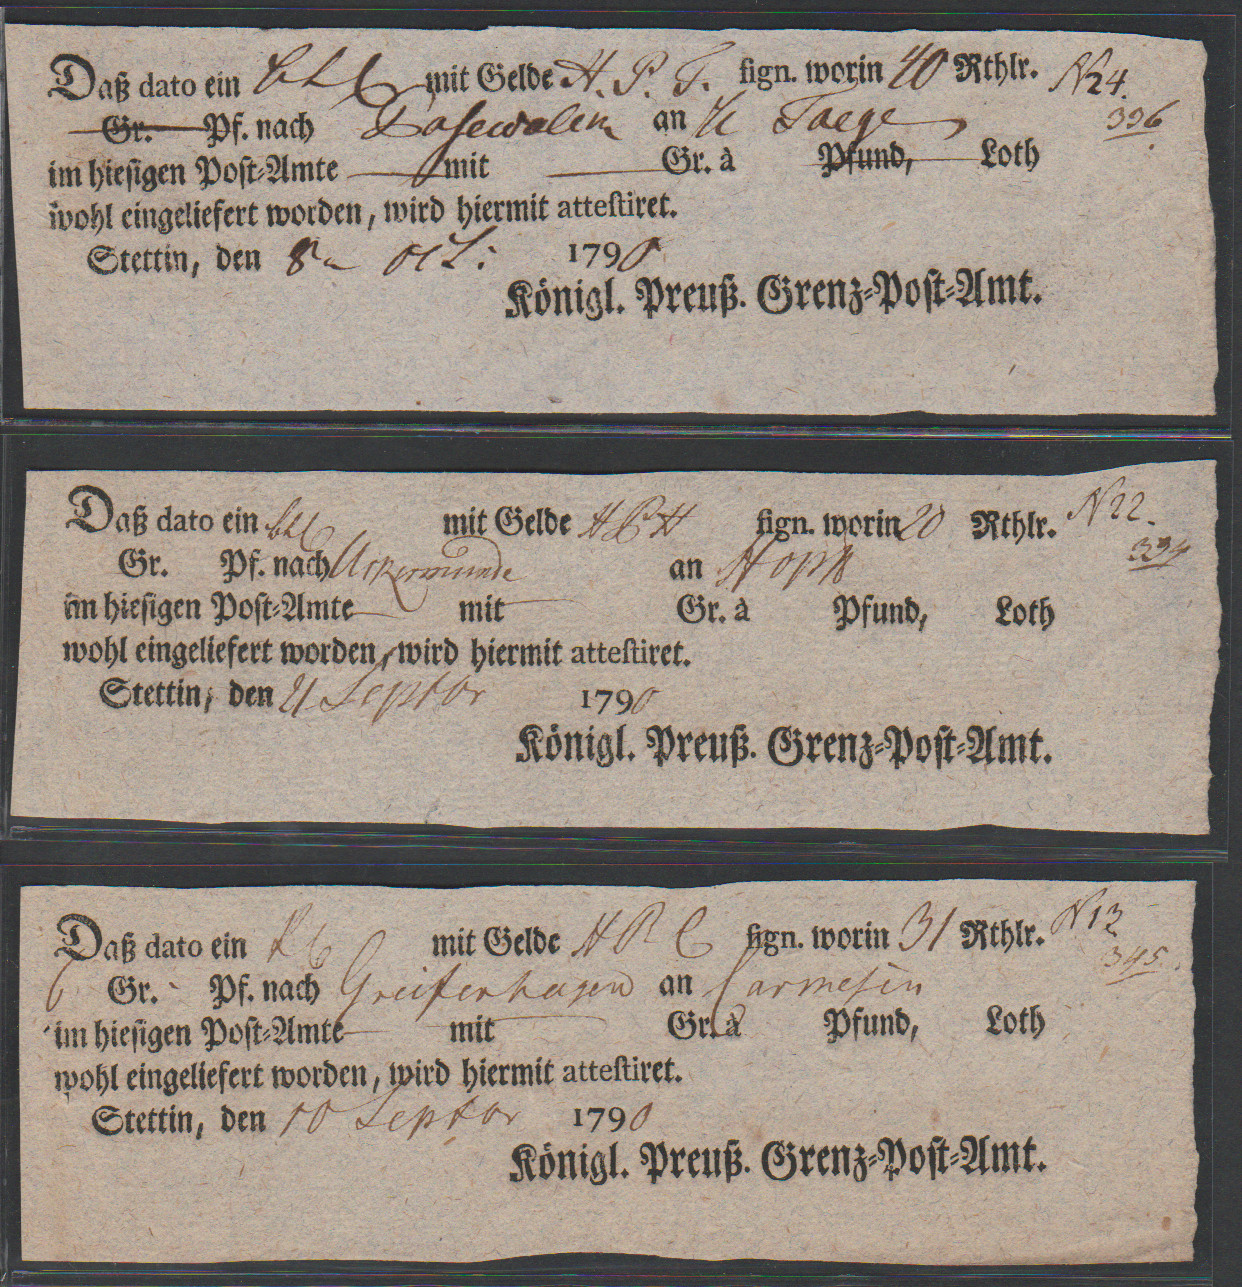 Daß dato ein mit Gelde H. P. T. sign. worin 40 Rthlr. N 24.
Gr. Pf. nach Pasewalck an Taege 396
im hiesigen Post-Amte mit Gr. à Pfund, Loth
wohl eingeliefert worden, wird hiermit attestiret.
Stettin, den 8 Oct: 1790
Königl. Preuß. Grenz-Post-Amt.
Daß dato ein mit Gelde H P H sign. worin 20 Rthlr. N 22.
Gr. Pf. nach Uckermünde an Hopp
im hiesigen Post-Amte mit Gr. à Pfund, Loth
wohl eingeliefert worden, wird hiermit attestiret.
Stettin, den 21 Septbr 1790
Königl. Preuß. Grenz-Post-Amt.
Daß dato ein mit Gelde H P C sign. worin 31 Rthlr. N 13
6 Gr. Pf. nach Greifenhagen an Carmesin 345
im hiesigen Post-Amte mit Gr. à Pfund, Loth
wohl eingeliefert worden, wird hiermit attestiret.
Stettin, den 10 Septbr 1790
Königl. Preuß. Grenz-Post-Amt.